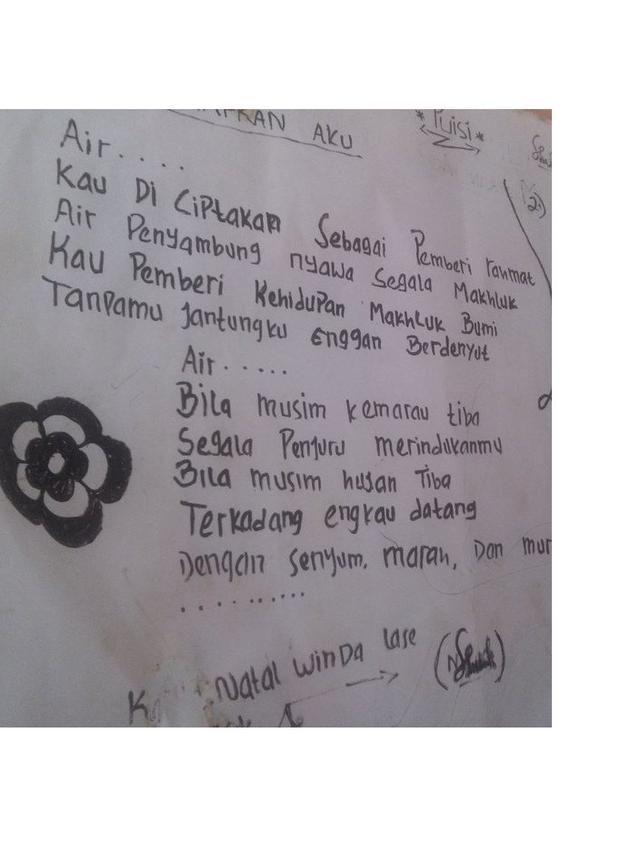 AKU
*Puisi*
2.)
Air....
Kau Di Ciptakan Sebagai Pemberi rahmat
Air Penyambung nyawa Segala Makhluk
Kau Pemberi Kehidupan Makhluk Bumi
Tanpamu Jantungku Enggan Berdenyut
Air.....
Bila musim kemarau tiba
Segala Penjuru merindukanmu
Bila musim hujan Tiba
Terkadang engkau datang
Dengan senyum, marah, Dan mur
..........
Natal winda Lase